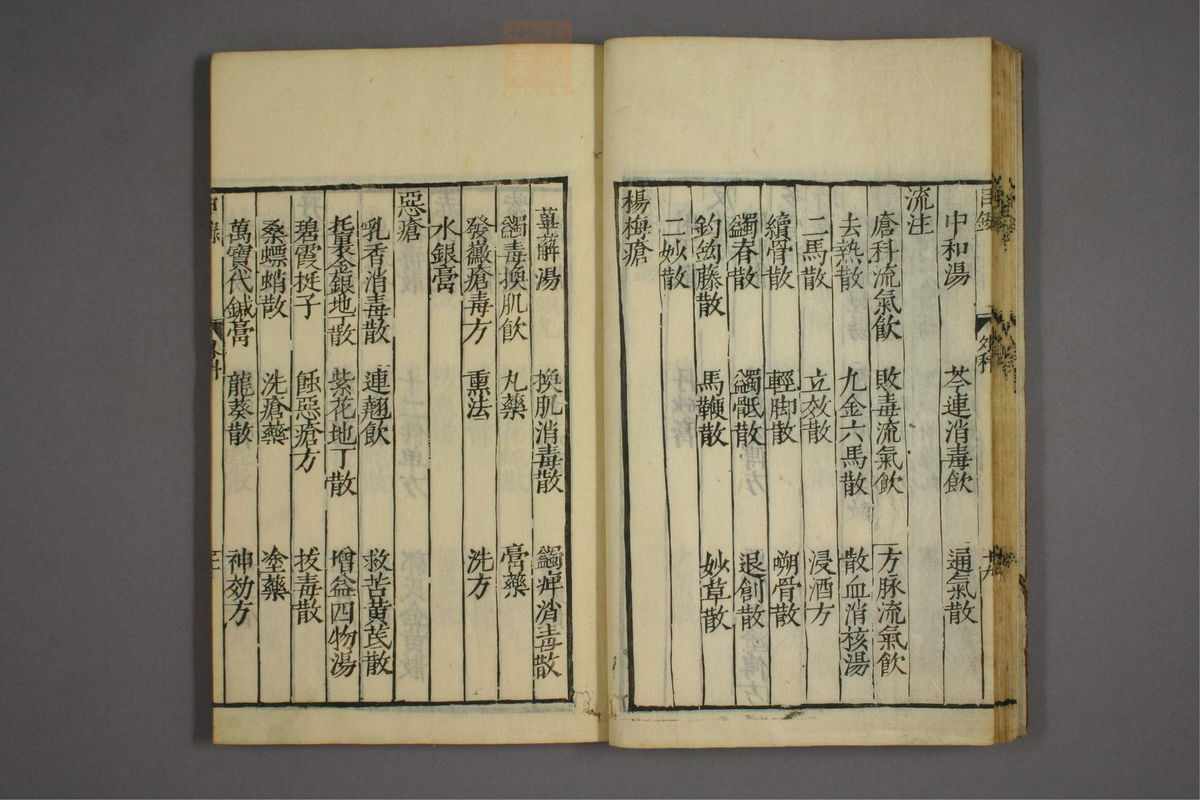 中和湯 芩連消毒飲 通氣散
流注
瘡科流氣飲 敗毒流氣飲 方脉流氣飲
去熱散 九金六馬散 散血消核湯
二馬散 立效散 浸酒方
續骨散 輕脚散 嗍骨散
蠲春散 蠲骶散 退創散
鈎藤散 馬鞭散 妙草散
二妙散
楊梅瘡
萆薢湯 換肌消毒散 蠲痺消毒散
蠲毒換肌飲 丸藥 膏藥
發癥瘡毒方 熏法 洗方
水銀膏
惡瘡
乳香消毒散 連翹飲 救苦黄芪散
托裏金銀地丁散 紫花地丁散 增益四物湯
碧霞挺子 蝕惡瘡方 拔毒散
桑螵蛸散 洗瘡藥 塗藥
萬寶代鍼膏 龍葵散 神効方